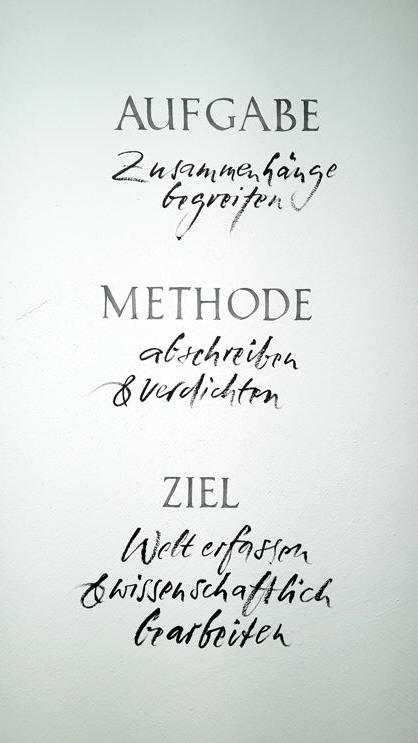 AUFGABE
Zusammenhänge
begreifen
METHODE
abschreiben
& verdichten
ZIEL
Welt erfassen
& wissenschaftlich
bearbeiten